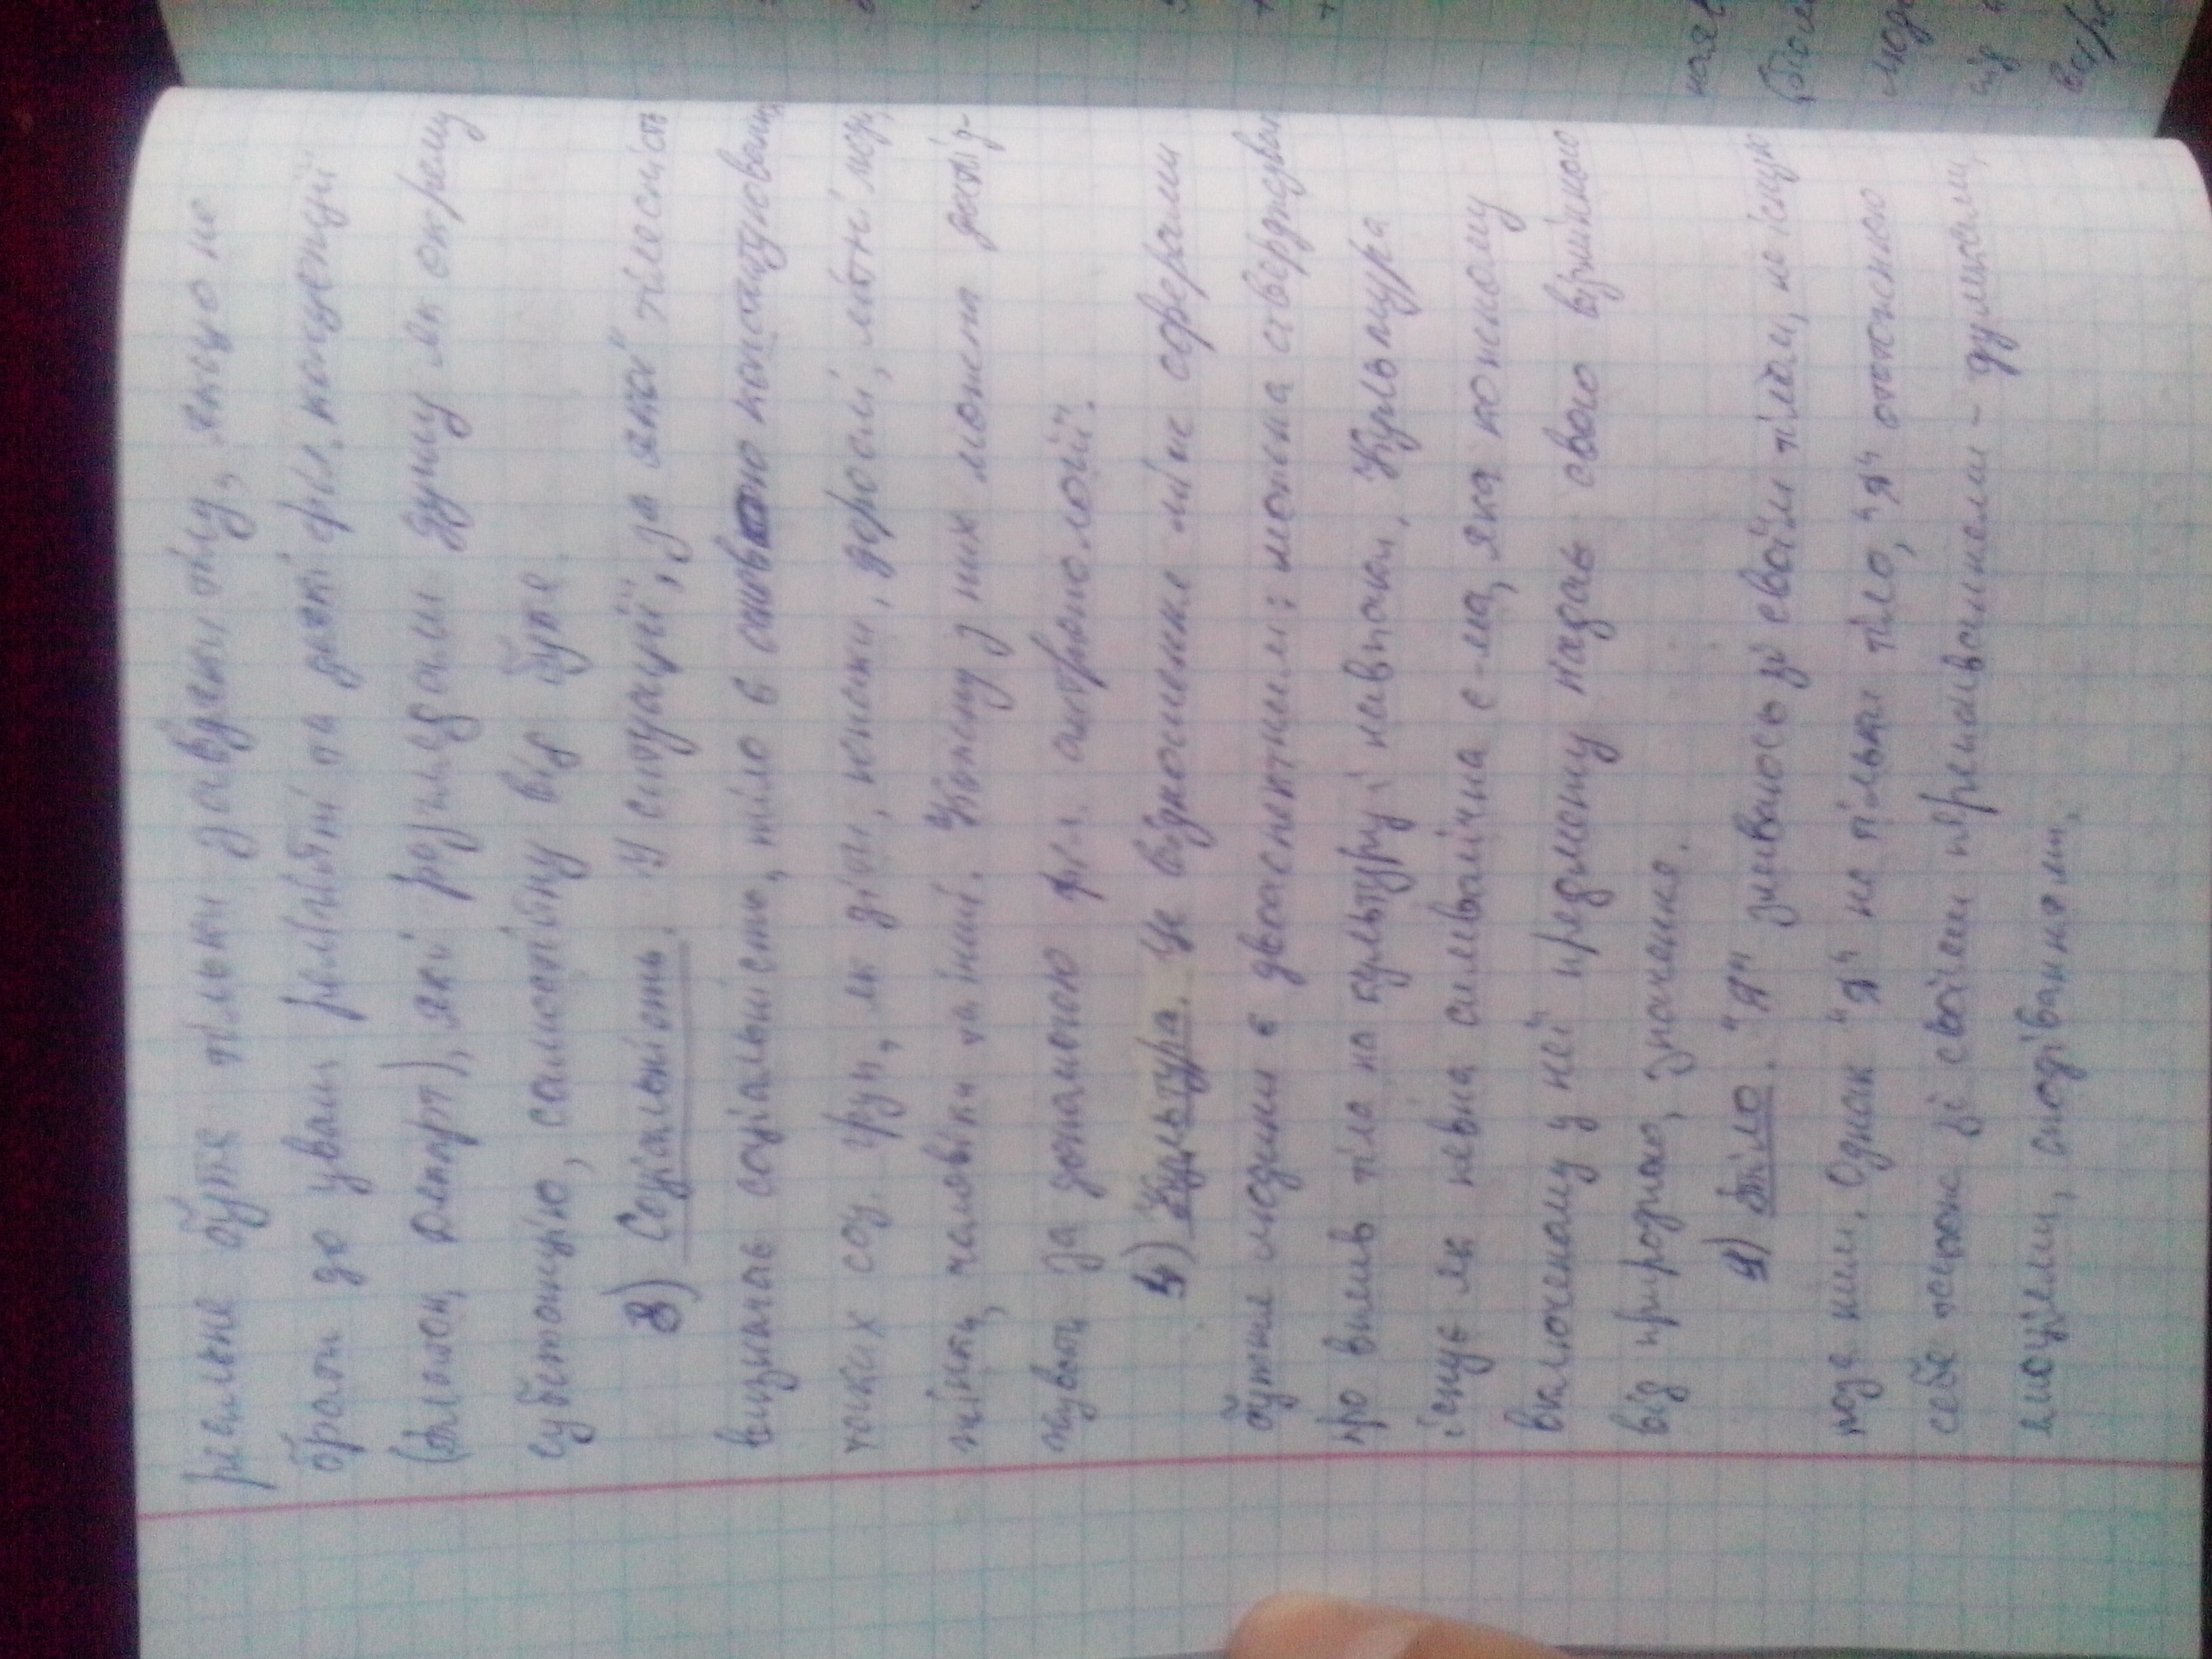 реальне буте тільки завдяки тілу, якщо не
брати до уваги релігійні та деякі філ. концепції
(Платон, Декарт), які розглядали душу як окрему
субстанцію, самостійну від буте
3) Соціальність. У ситуації, за якої тілесність
визначає соціальність, тіло є основою конституювання
таких соц. груп, як діти, юнаки, дорослі, літні люди,
жінки, чоловіки та інші. Кожену з них можна дослід-
жувати за допомогою філ. антропології.
4) Культура. Це відношення між сферами
буття людини є двоаспектним: можна стверджувати
про вплив тіла на культуру і навпаки. Культура
існує як певна символічна с-ма, яка кожному
включеному у неї предмету надає свого відмінного
від природного, значення.
тіло. "Я" зливаюсь зі своїм тілом, не існую
поза ним. Однак "Я" не тільки тіло, "Я" ототожнюю
себе також зі своїми переживаннями - думками,
емоціями, сподіваннями.
наяв
люд
від